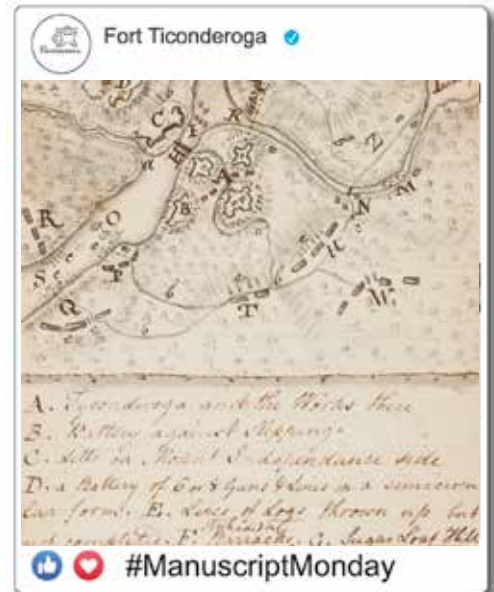 Fort Ticonderoga
C
K
Z
H
A
B
R
O
N
M
S
P
U
Q
T
W
A. Tyconderoga and the Works there
B. Battery against Shipping
C. ditto on Mount Independance side
D. a Battery of 6 or 8 Guns & Lines in a semicircu
lar form. E. Lines of Logs thrown up but
not complete. F. Barracks. G. Sugar Loaf Hill
#ManuscriptMonday